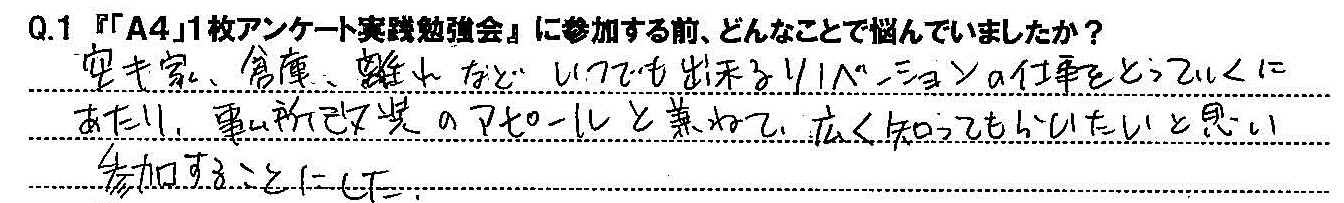 Q.1 『「A4」1枚アンケート実践勉強会』に参加する前、どんなことで悩んでいましたか？
空き家、倉庫、離れなどいつでも出来るリノベーションの仕事をとっていくに
あたり、事ム所改装のアピールと兼ねて、広く知ってもらいたいと思い
参加することにした.